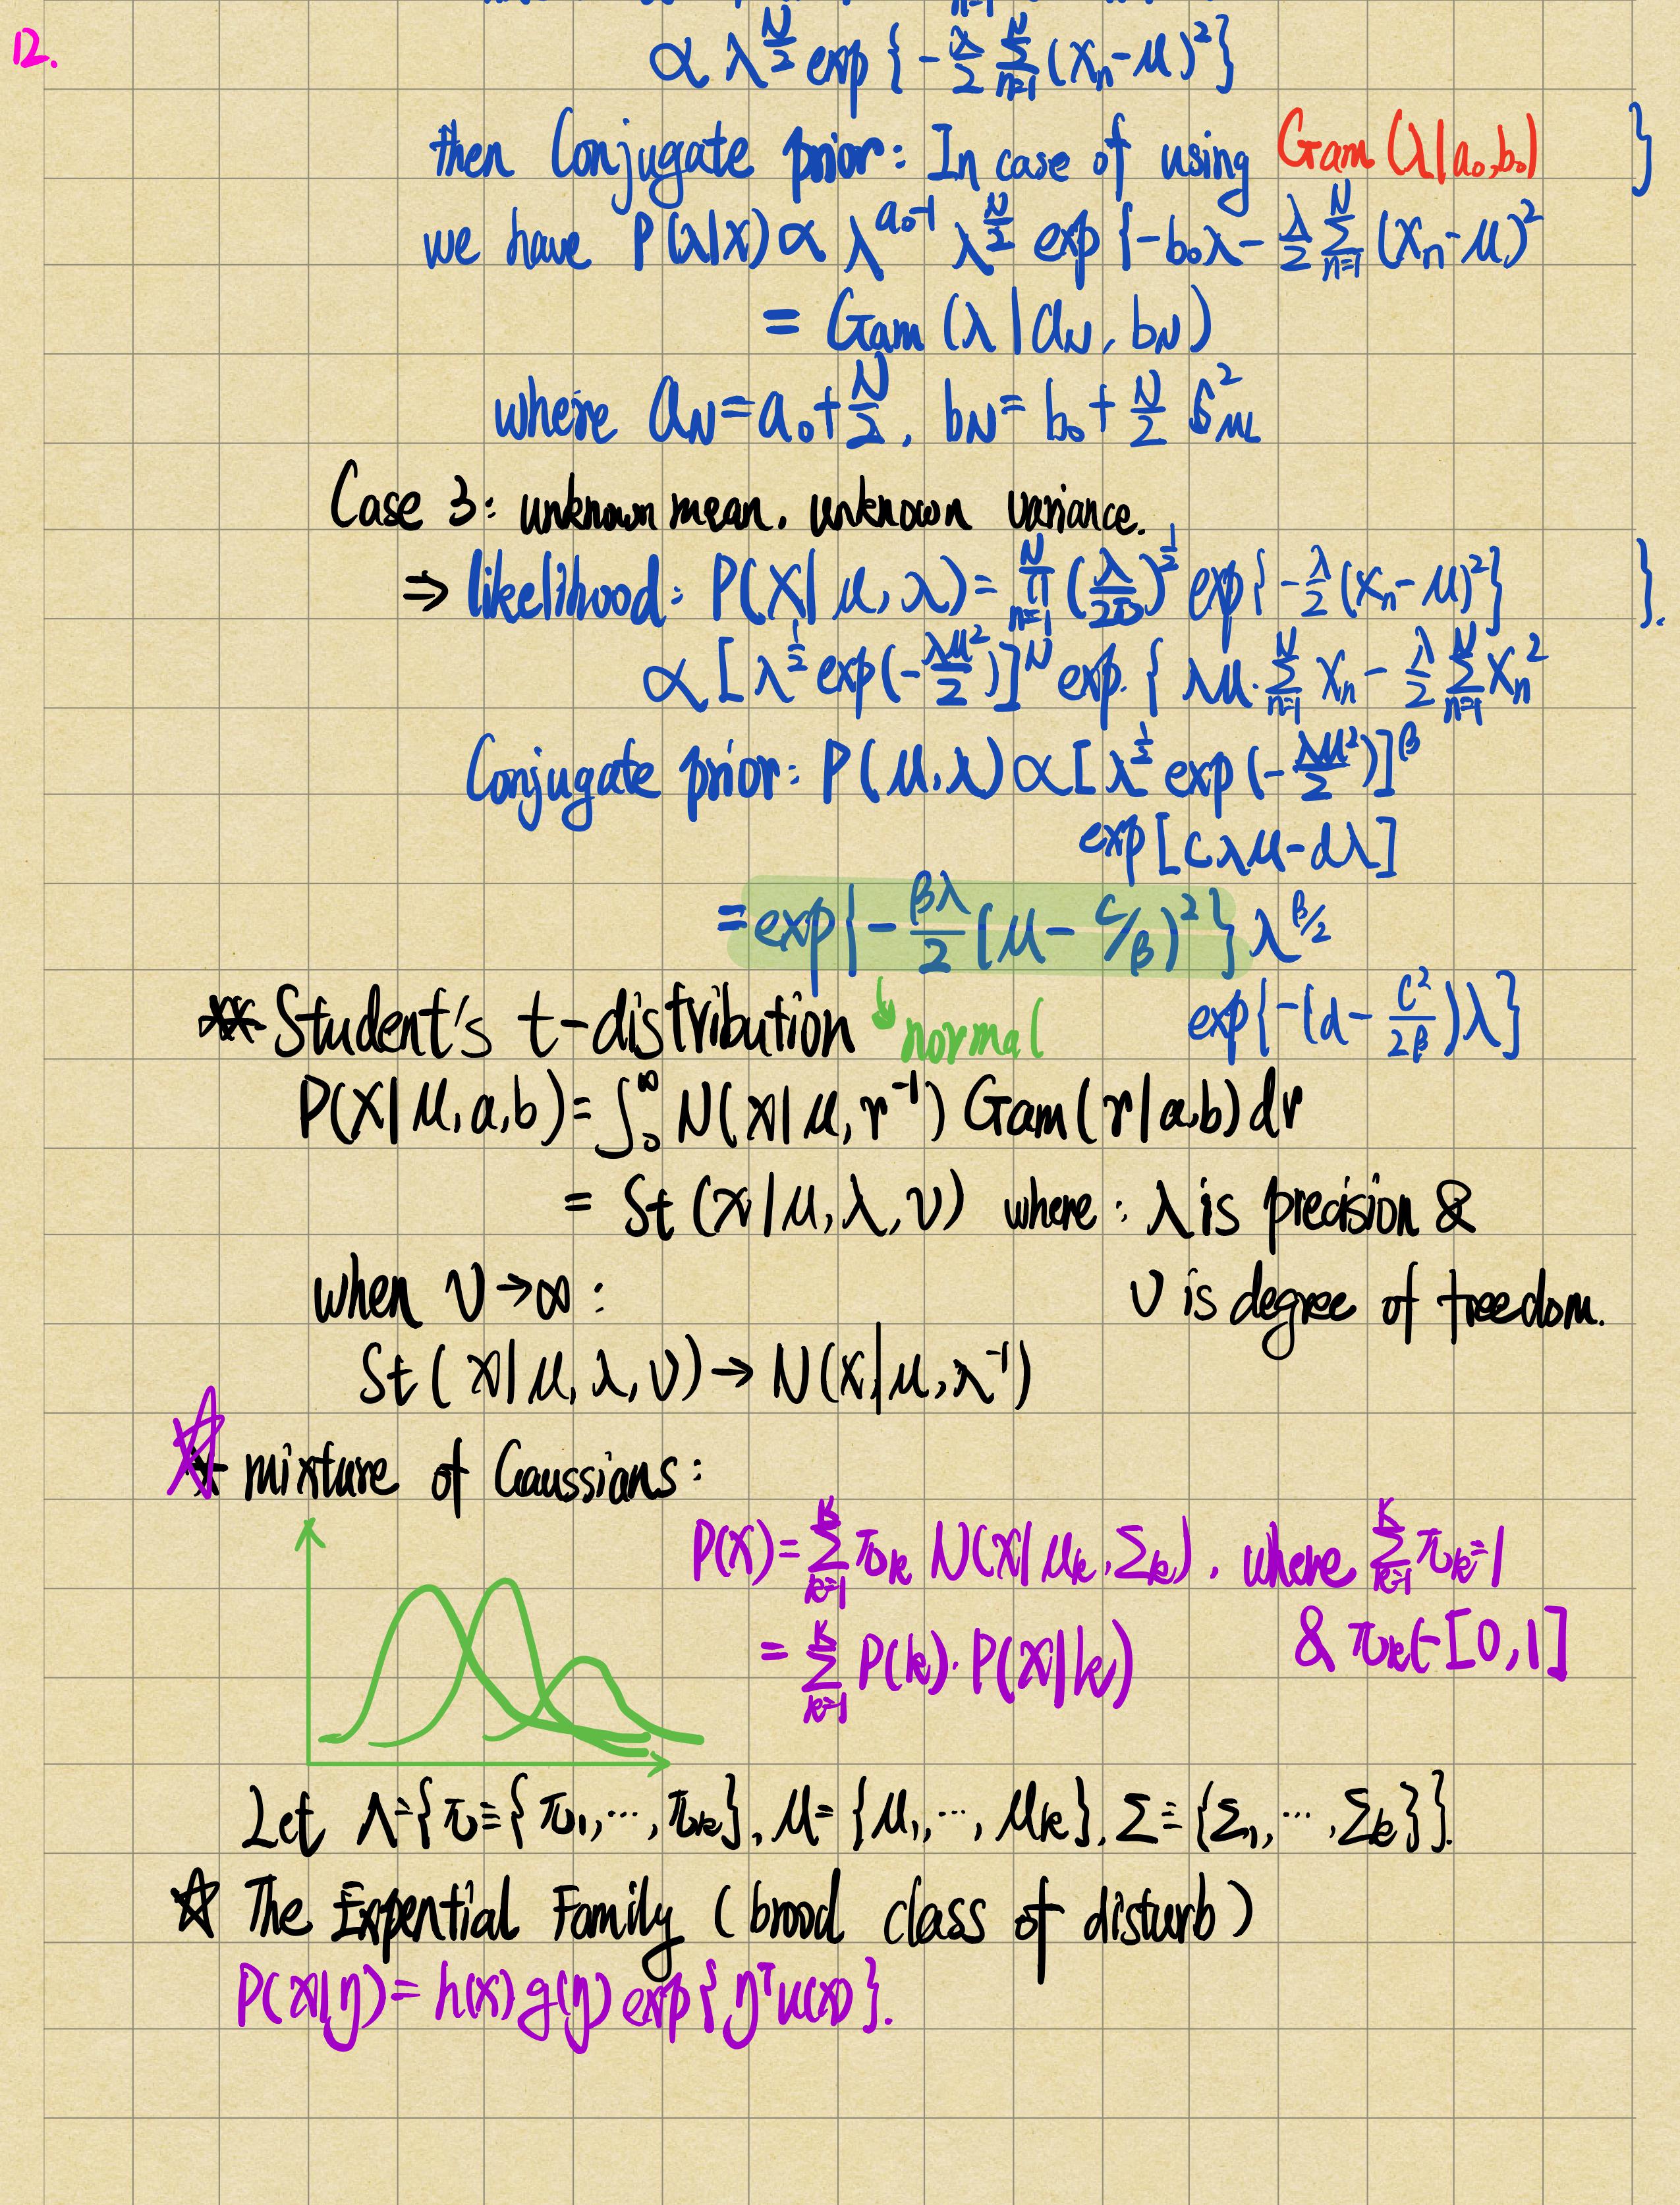 12.
∝ λ^{N/2} exp{-λ/2 Σ_{n=1}^{N} (x_n-μ)²}
then Conjugate prior: In case of using Gam(λ|a₀,b₀) }
we have P(λ|X) ∝ λ^{a₀-1} λ^{N/2} exp{-b₀λ-λ/2 Σ_{n=1}^{N} (x_n-μ)²
= Gam(λ|a_N, b_N)
where a_N=a₀+N/2, b_N=b₀+N/2 σ²_ML
Case 3: unknown mean. unknown variance.
⇒ likelihood: P(X|μ,λ)=∏_{n=1}^{N} (λ/2π)^{1/2} exp{-λ/2 (x_n-μ)²} }.
∝ [λ^{1/2} exp(-λμ²/2)]^N exp{λμ·Σ_{n=1}^{N} x_n-λ/2 Σ_{n=1}^{N} x_n²
Conjugate prior: P(μ,λ) ∝ [λ^{1/2} exp(-λμ²/2)]^β
exp[cλμ-dλ]
=exp{-βλ/2 (μ-c/β)²} λ^{β/2}
exp{-(d-c²/2β)λ}
** Student's t-distribution ↓normal
P(X|μ,a,b)=∫₀^∞ N(x|μ,r⁻¹) Gam(r|a,b)dr
= St(x|μ,λ,ν) where: λ is precision &
when ν→∞: ν is degree of freedom.
St(x|μ,λ,ν)→N(x|μ,λ⁻¹)
☆ mixture of Gaussians:
P(x)=Σ_{k=1}^{K} π_k N(x|μ_k,Σ_k), where Σ_{k=1}^{K} π_k=1
= Σ_{k=1}^{K} P(k)·P(x|k) & π_k∈[0,1]
Let Λ={π≡{π₁,...,π_k}, μ={μ₁,...,μ_k}, Σ≡{Σ₁,...,Σ_k}}.
☆ The Expential Family (brood class of disturb)
P(x|η)=h(x)g(η)exp{ηᵀu(x)}.